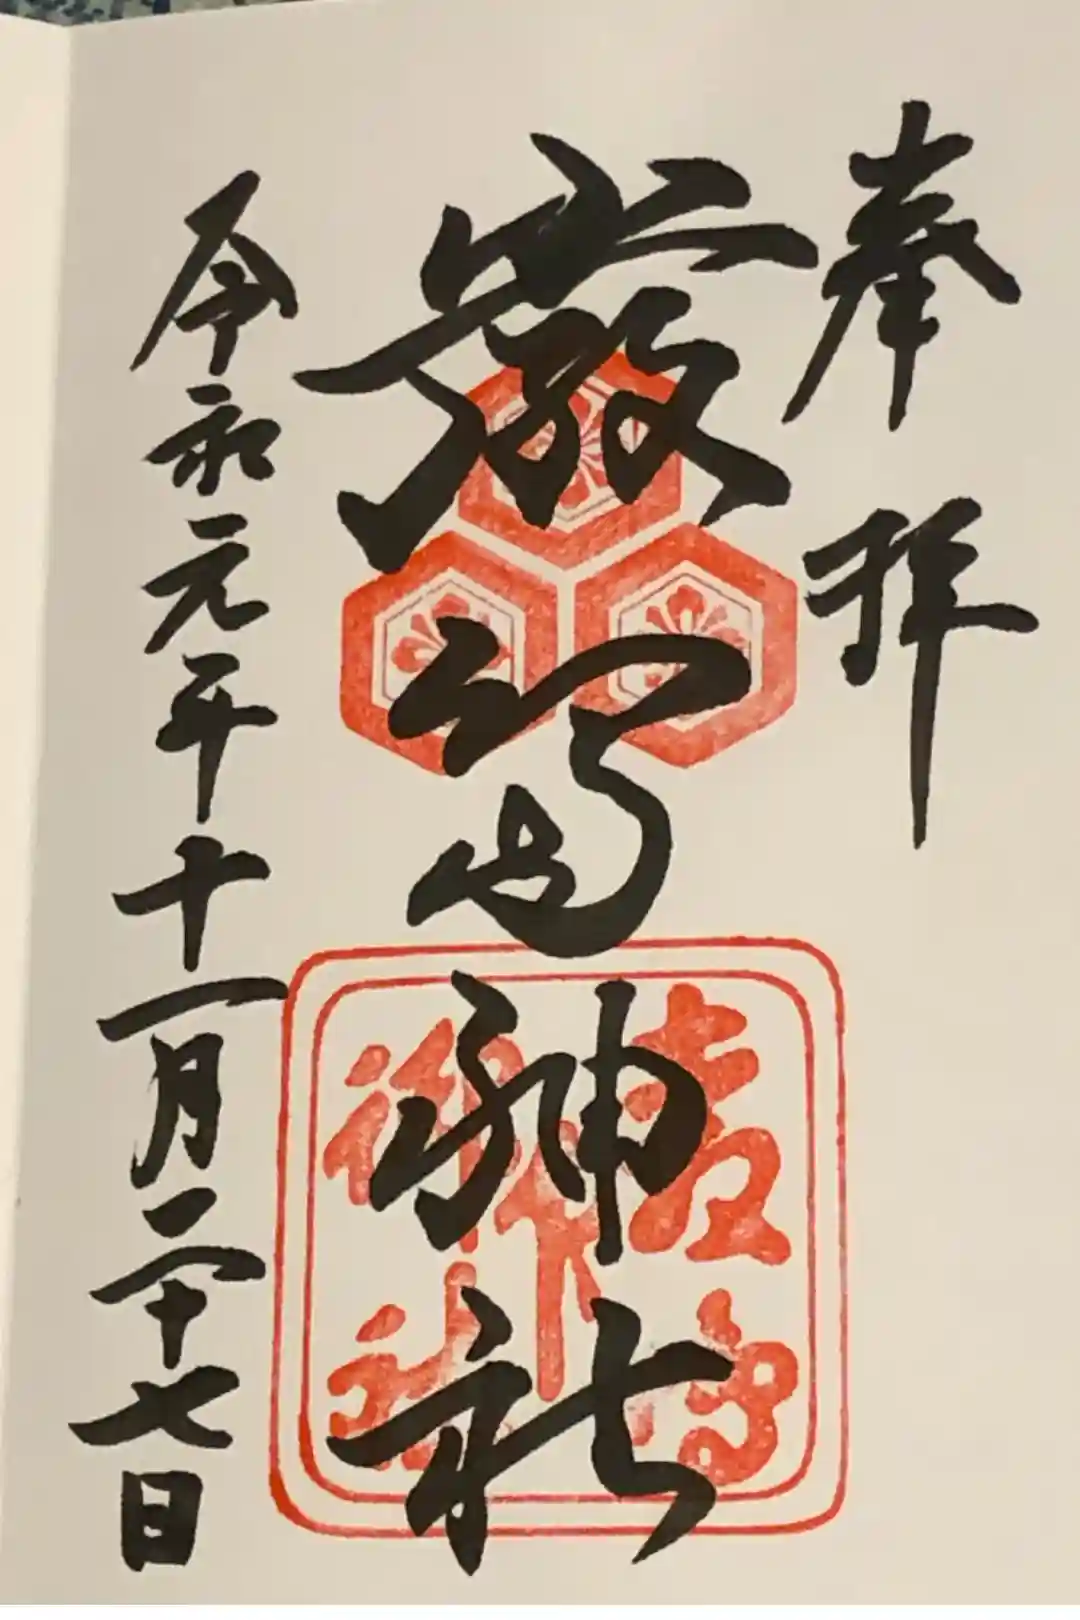 奉拝
厳島神社
令和元年十一月二十七日